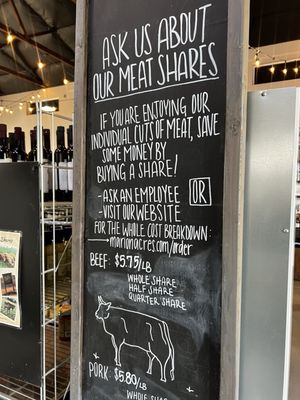 ASK US ABOUT
OUR MEAT SHARES
IF YOU ARE ENJOYING OUR
INDIVIDUAL CUTS OF MEAT, SAVE
SOME MONEY BY
BUYING A SHARE!
-ASK AN EMPLOYEE
OR
-VISIT OUR WEBSITE
FOR THE WHOLE COST BREAKDOWN:
→marianacres.com/order
BEEF: $5.75/LB
WHOLE SHARE
HALF SHARE
QUARTER SHARE
PORK: $5.80/LB
WHOLE SHARE